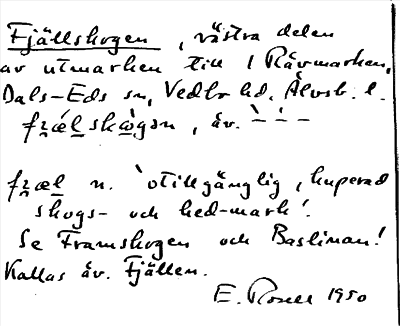 Fjällskogen, västra delen
av utmarken till 1 Rävmarken,
Dals-Eds sn, Vedbo hd, Älvsb. l.
fræ̀lskɷgən, äv. `– ´– –
fræl n. 'otillgänglig, kuperad
skogs- och hed-mark'.
Se Framskogen och Baslinan!
Kallas äv. Fjällen.
E. Rosell 1950